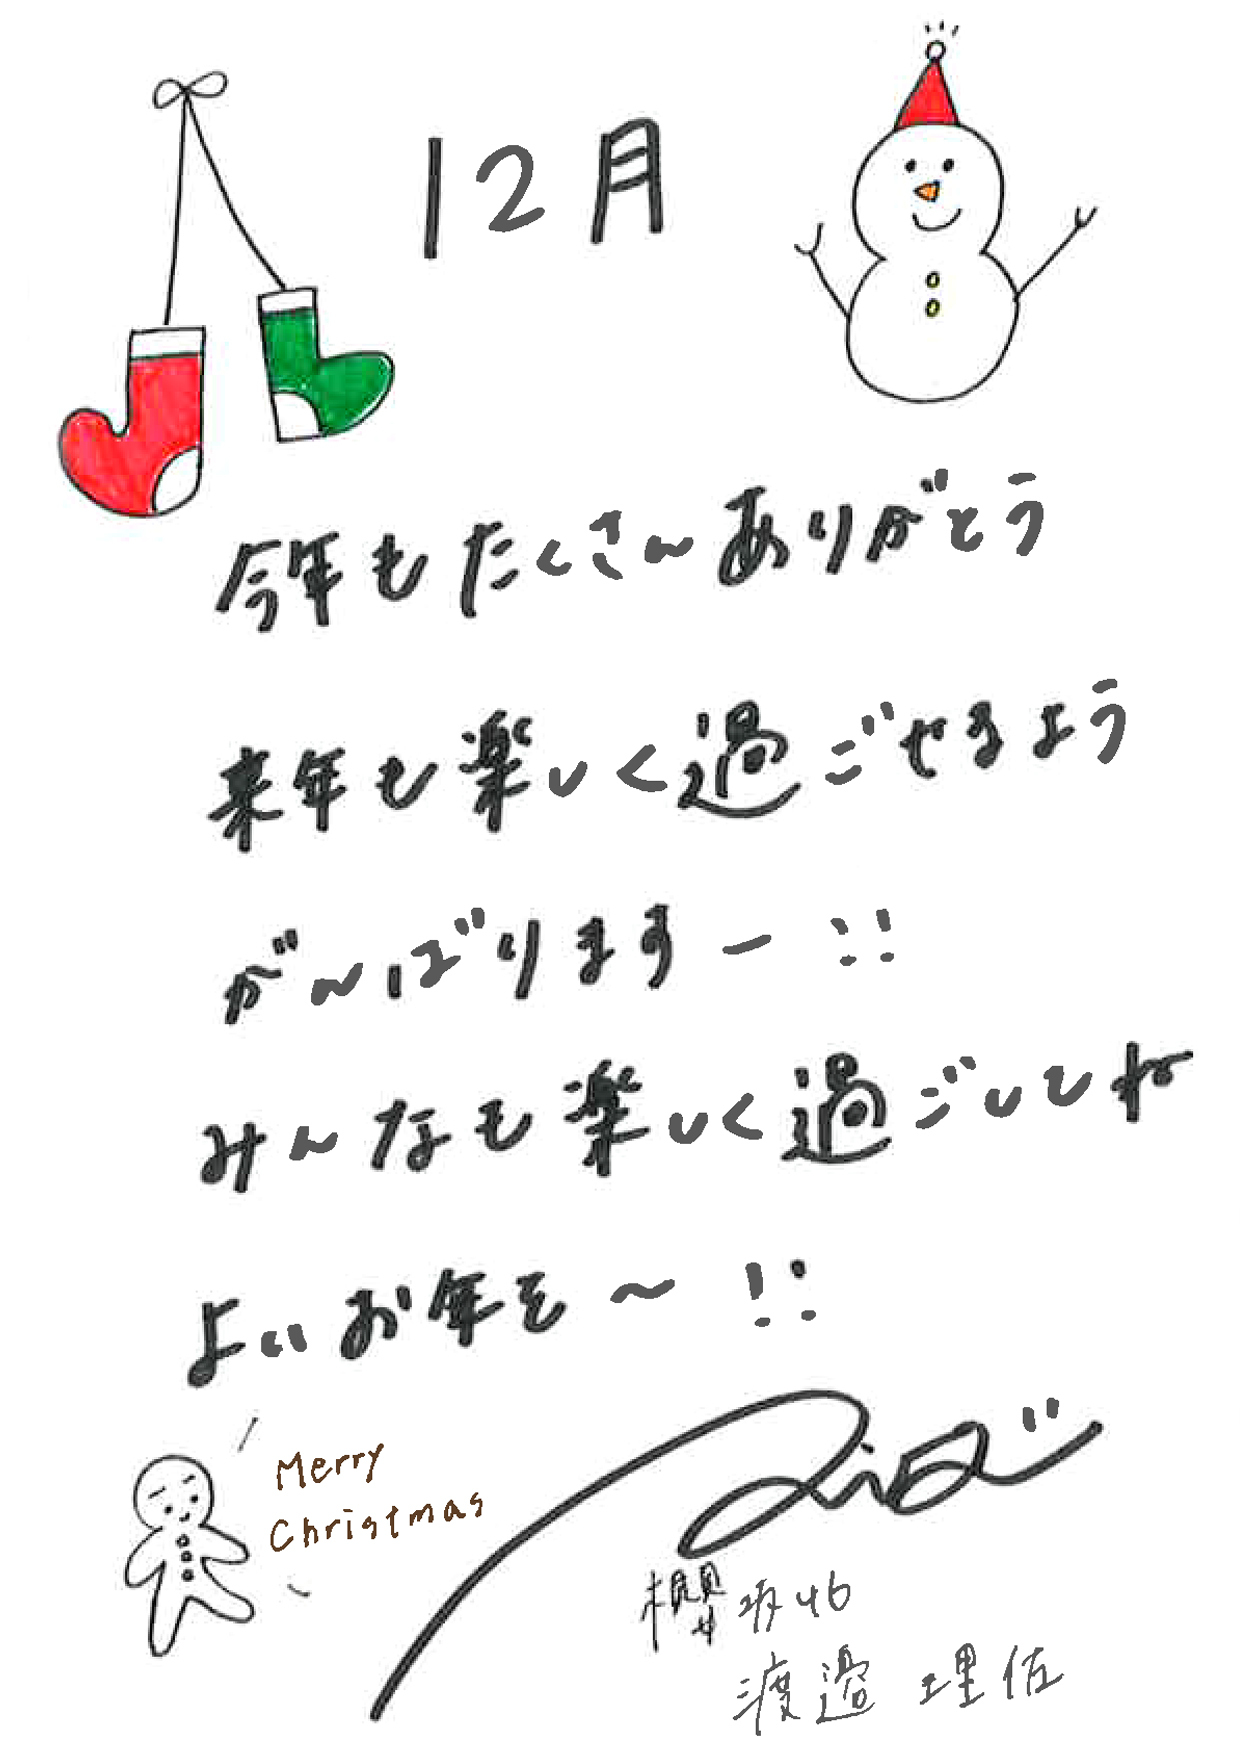 12月
今年もたくさんありがとう
来年も楽しく過ごせるよう
がんばりますー!!
みんなも楽しく過ごしてね
よいお年を〜!!
Merry
Christmas
櫻坂46
渡邉 理佐